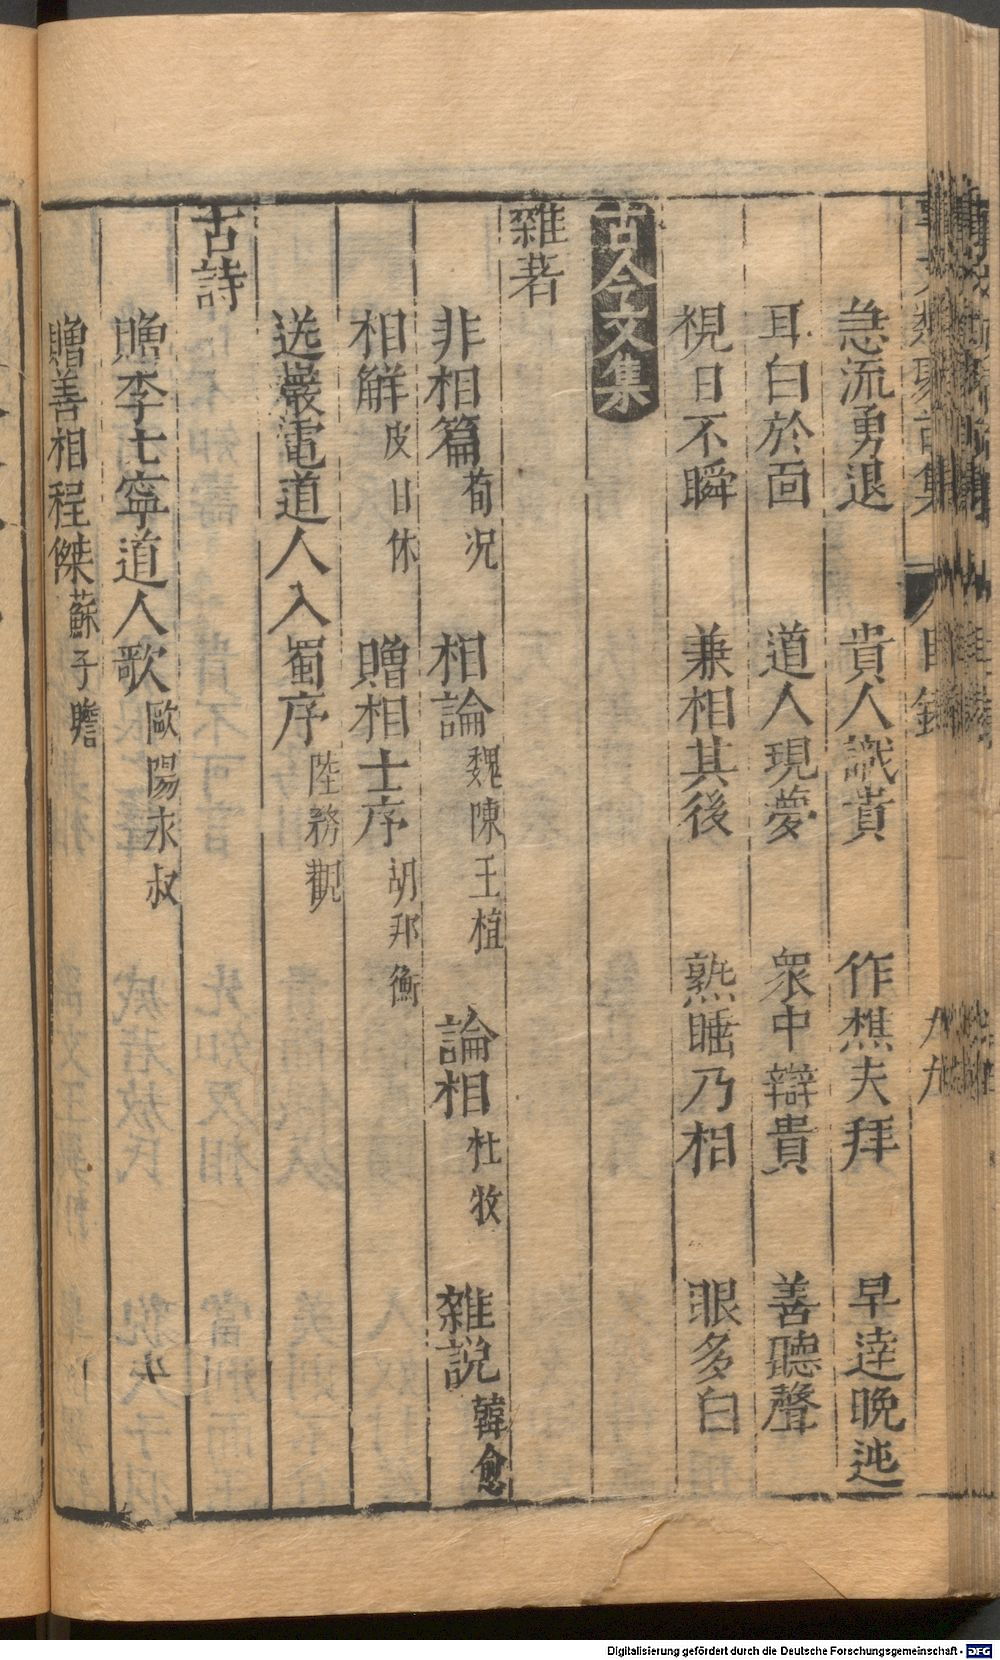 急流勇退 貴人識貴 作樵夫拜 早達晚迍
耳白於面 道人現夢 眾中辯貴 善聽聲
視日不瞬 兼相其後 熟睡乃相 眼多白
古今文集
雜著
非相篇 荀況 相論 魏陳王植 論相 杜牧 雜說 韓愈
相解 皮日休 贈相士序 胡邦衡
送巖電道人入蜀序 陸務觀
古詩
贈李士寧道人歌 歐陽永叔
贈善相程傑 蘇子瞻
Digitalisierung gefördert durch die Deutsche Forschungsgemeinschaft - DFG